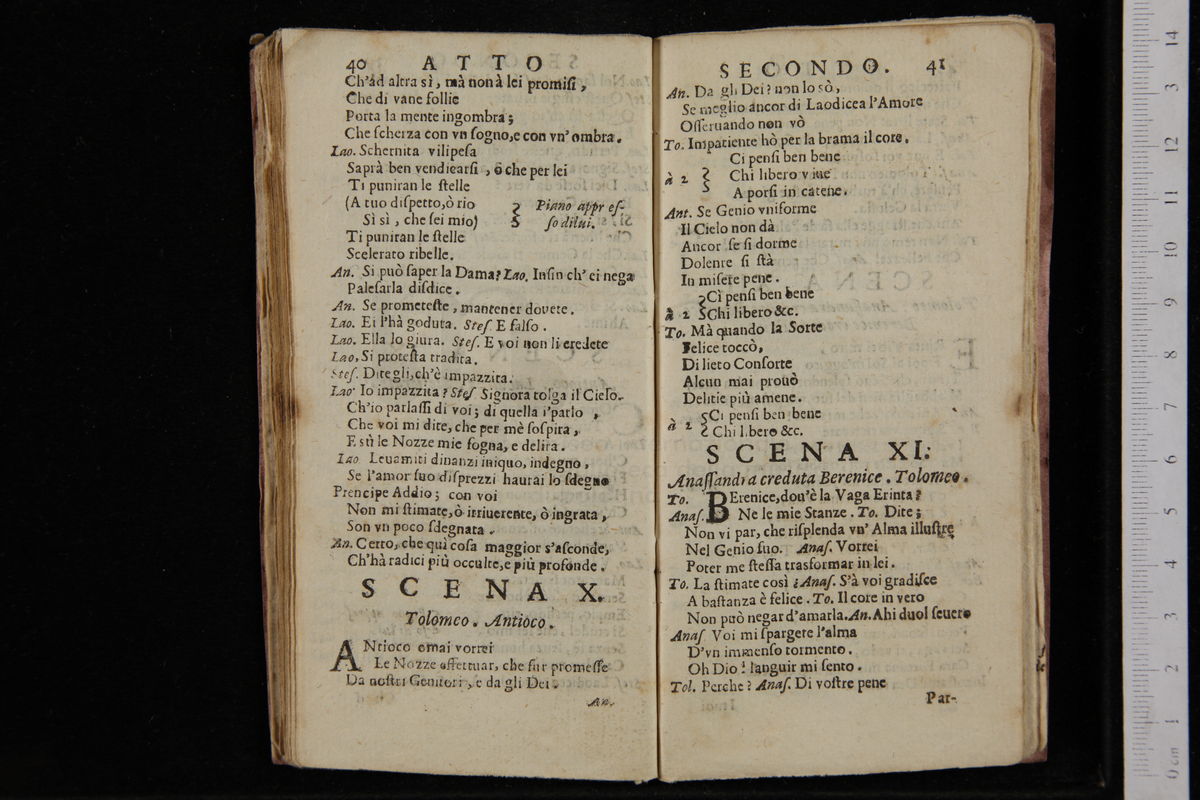 40 ATTO
Ch'ad altra sì, mà non à lei promiſi,
Che di vane follie
Porta la mente ingombra;
Che ſcherza con vn ſogno,e con vn' ombra.
Lao. Schernita vilipeſa
Saprà ben vendicarſi, ò che per lei
Ti puniran le ſtelle
(A tuo diſpetto,ò rio Piano appreſ-
Sì sì, che ſei mio) ſo di lui.
Ti puniran le ſtelle
Scelerato ribelle.
An. Si può ſaper la Dama? Lao. Inſin ch' ei nega
Paleſarla diſdice.
An. Se prometeſte, mantener douete.
Lao. Ei l'hà goduta. Steſ. E falſo.
Lao. Ella lo giura. Steſ. E voi non li credete
Lao, Si proteſta tradita.
Steſ. Ditegli,ch'è impazzita.
Lao Io impazzita? Steſ Signora tolga il Cielo.
Ch'io parlaſſi di voi; di quella i'parlo,
Che voi mi dite, che per mè ſoſpira,
E sù le Nozze mie ſogna, e delira.
Lao Leuamiti dinanzi iniquo, indegno,
Se l'amor ſuo diſprezzi haurai lo ſdegno
Prencipe Addio; con voi
Non mi ſtimate,ò irriuerente, ò ingrata,
Son vn poco ſdegnata.
An. Certo, che quì coſa maggior s'aſconde,
Ch'hà radici più occulte,e più profonde.
SCENA X.
Tolomeo. Antioco.
ANtioco omai vorrei
Le Nozze effettuar, che fur promeſſe
Da noſtri Genitori, e da gli Dei.
An.
SECONDO. 41
An. Da gli Dei? non lo sò,
Se meglio ancor di Laodicea l'Amore
Oſſeruando non vò
To. Impatiente hò per la brama il core.
Ci penſi ben bene
à 2 Chi libero viue
A porſi in catene.
Ant. Se Genio vniforme
Il Cielo non dà
Ancor ſe ſi dorme
Dolente ſi ſtà
In miſere pene.
Ci penſi ben bene
à 2 Chi libero &c.
To. Mà quando la Sorte
Felice toccò,
Di lieto Conſorte
Alcun mai prouò
Delitie più amene.
Ci penſi ben bene
à 2 Chi libero &c.
SCENA XI.
Anaſſandra creduta Berenice. Tolomeo.
To. BErenice,dou'è la Vaga Erinta?
Anaſ. Ne le mie Stanze. To. Dite;
Non vi par, che riſplenda vn' Alma illuſtre
Nel Genio ſuo. Anaſ. Vorrei
Poter me ſteſſa trasformar in lei.
To. La ſtimate così? Anaſ. S'à voi gradiſce
A baſtanza è felice. To. Il core in vero
Non può negar d'amarla. An. Ahi duol ſeuero
Anaſ Voi mi ſpargere l'alma
D'vn immenſo tormento.
Oh Dio! languir mi ſento.
Tol. Perche? Anaſ. Di voſtre pene
Par-